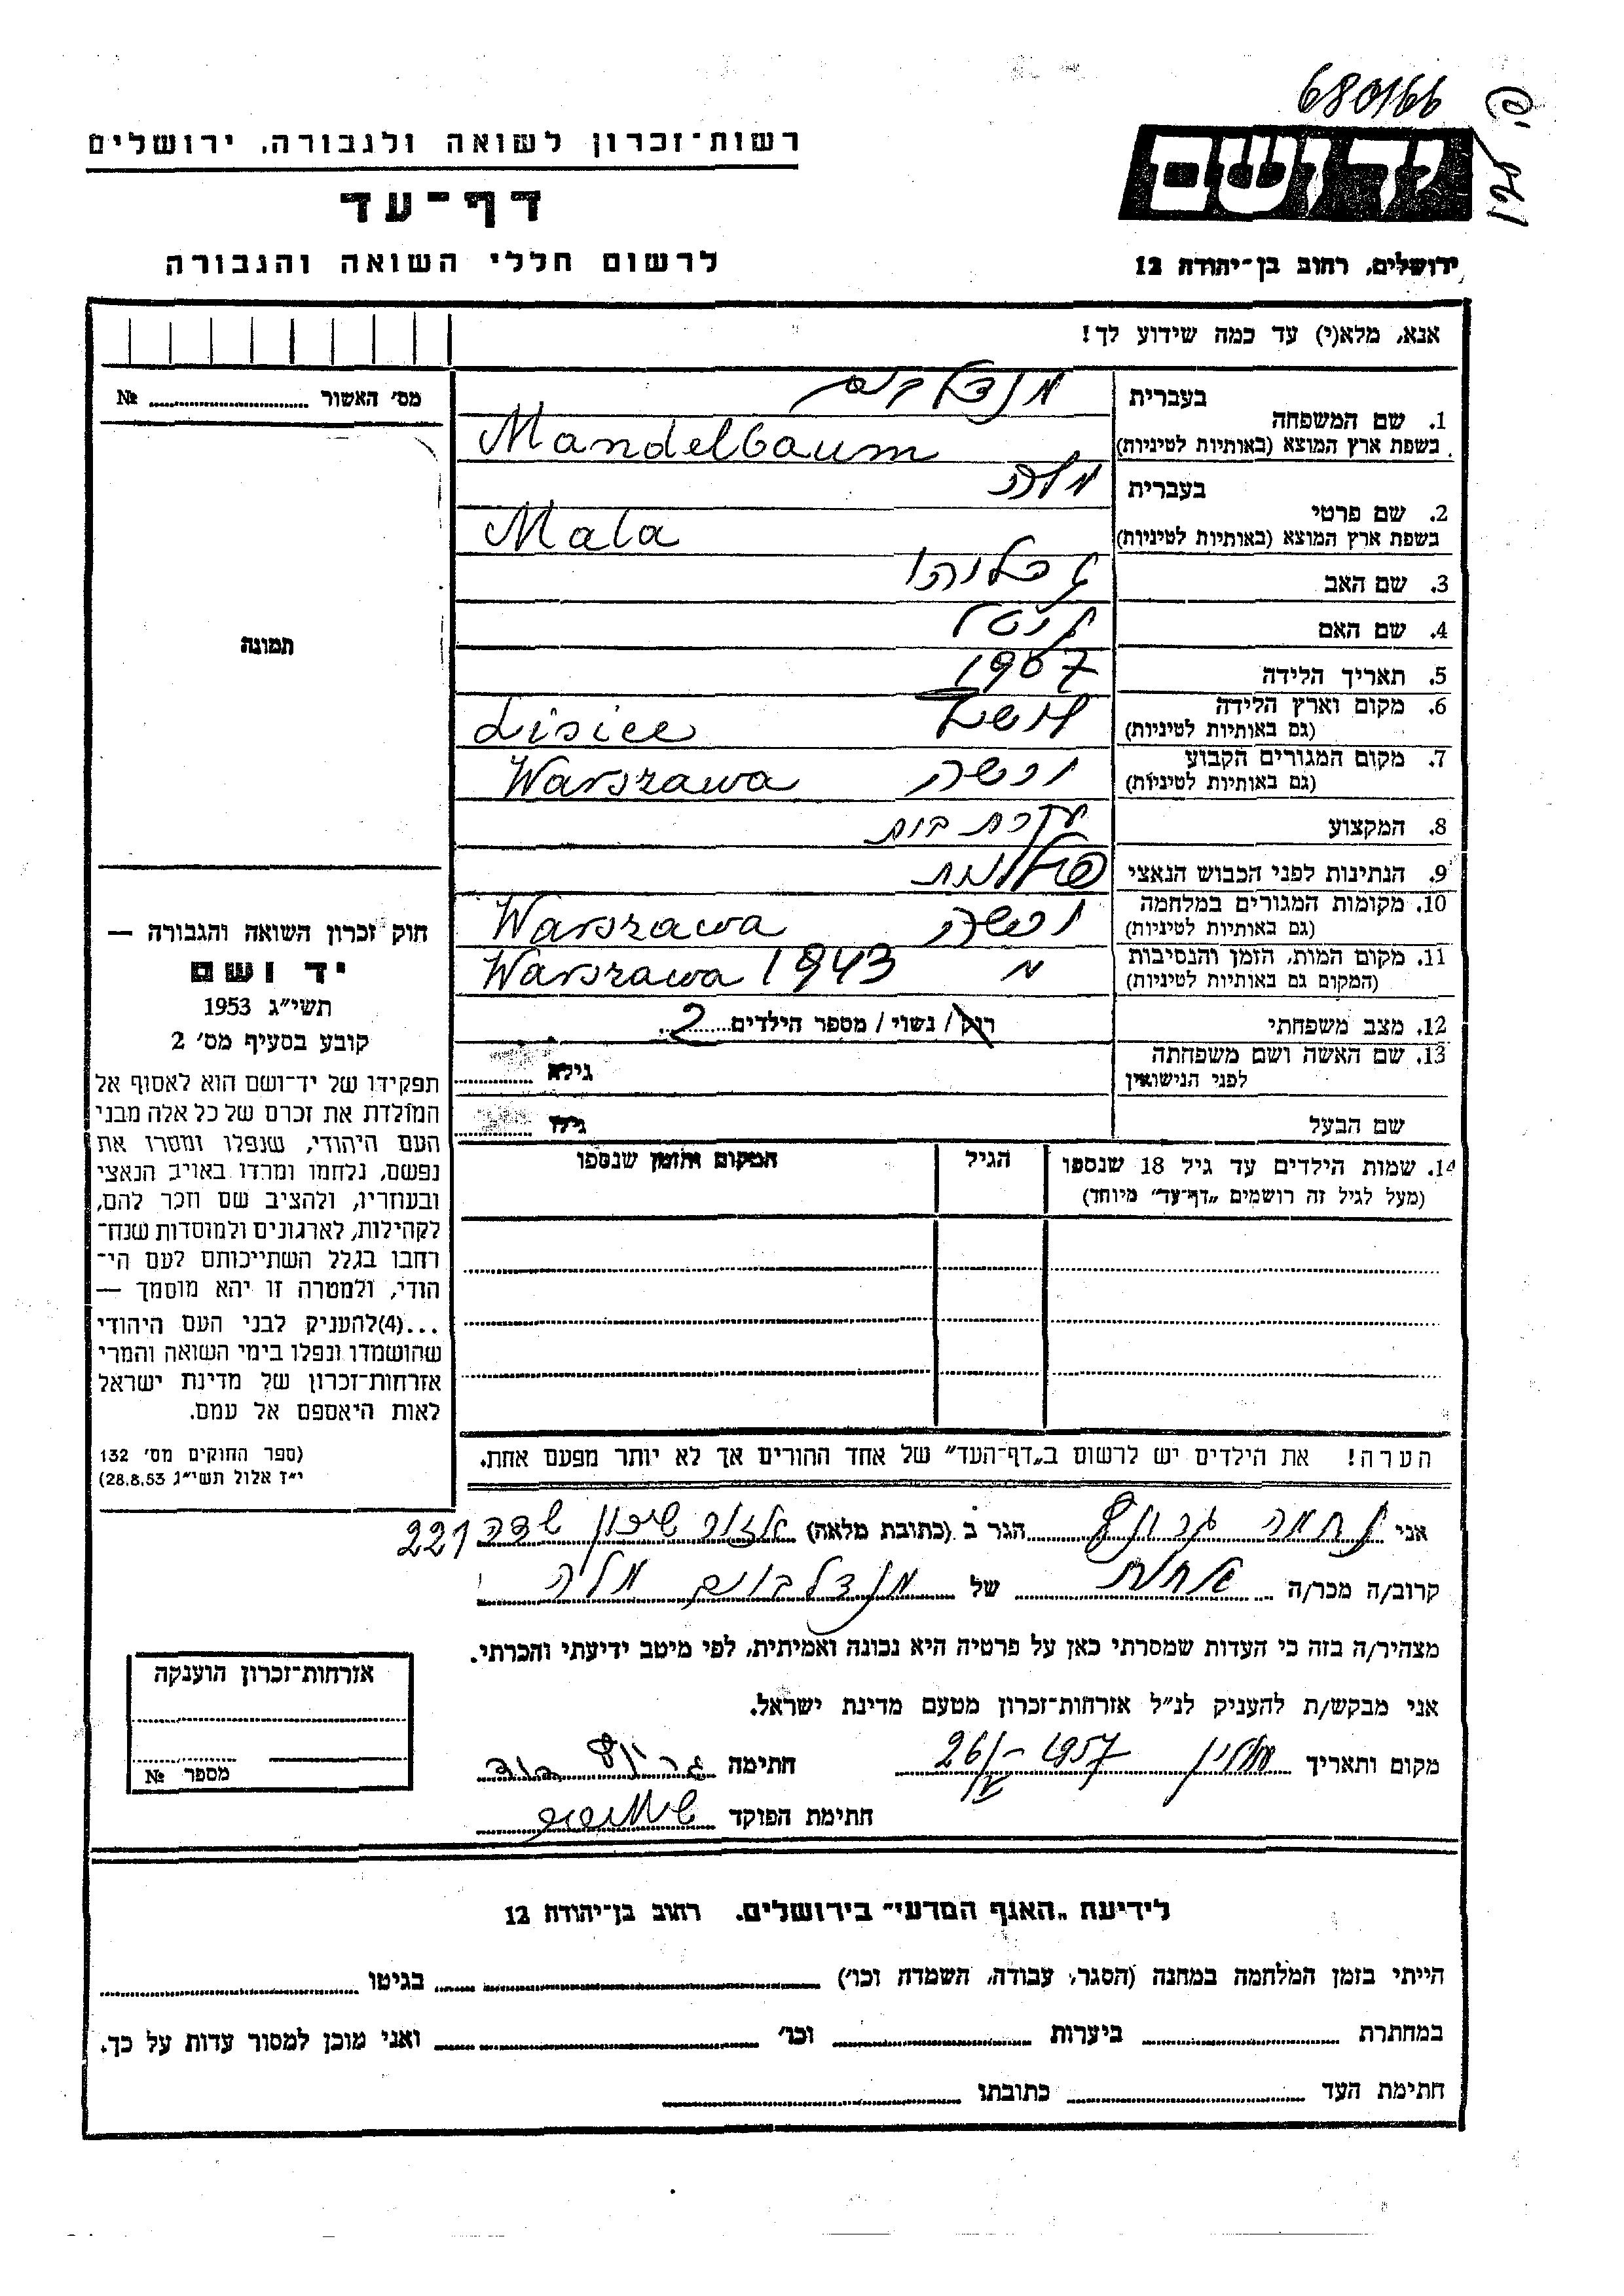 680166
יד ושם
רשות-זכרון לשואה ולגבורה, ירושלים
דף-עד
לרשום חללי השואה והגבורה
ירושלים, רחוב בן-יהודה 12
אנא, מלא(י) עד כמה שידוע לך!
מס' האשור № 
1. שם המשפחה
בעברית
מנדלבוים
בשפת ארץ המוצא (באותיות לטיניות)
Mandelbaum
2. שם פרטי
בעברית
מלה
בשפת ארץ המוצא (באותיות לטיניות)
Mala
3. שם האב גדליהו
4. שם האם
5. תאריך הלידה 1907
6. מקום וארץ הלידה
(גם באותיות לטיניות)
Lisice
7. מקום המגורים הקבוע ורשה
(גם באותיות לטיניות) Warszawa
8. המקצוע עקרת בית
9. הנתינות לפני הכבוש הנאצי פולנית
10. מקומות המגורים במלחמה ורשה
(גם באותיות לטיניות) Warszawa
11. מקום המות, הזמן והנסיבות
(המקום גם באותיות לטיניות) Warszawa 1943
12. מצב משפחתי רווק / נשוי / מספר הילדים 2
13. שם האשה ושם משפחתה
לפני הנישואין
גילא
שם הבעל גילו
14. שמות הילדים עד גיל 18 שנספו הגיל המקום והזמן שנספו
(מעל לגיל זה רושמים „דף-עד" מיוחד)
הערה! את הילדים יש לרשום ב„דף-העד" של אחד ההורים אך לא יותר מפעם אחת.
תמונה
חוק זכרון השואה והגבורה —
יד ושם
תשי"ג 1953
קובע בסעיף מס' 2
תפקידו של יד-ושם הוא לאסוף אל
המולדת את זכרם של כל אלה מבני
העם היהודי, שנפלו ומסרו את
נפשם, נלחמו ומרדו באויב הנאצי
ובעוזריו, ולהציב שם וזכר להם,
לקהילות, לארגונים ולמוסדות שנח-
רבו בגלל השתייכותם לעם הי-
הודי, ולמטרה זו יהא מוסמך —
...(4) להעניק לבני העם היהודי
שהושמדו ונפלו בימי השואה והמרי
אזרחות-זכרון של מדינת ישראל
לאות היאספם אל עמם.
(ספר החוקים מס' 132
י"ז אלול תשי"ג 28.8.53)
אני נחמה הגר ב (כתובת מלאה) אזור שיכון 221
קרוב/ה מכר/ה אחות של מנדלבוים מלה
מצהיר/ה בזה כי העדות שמסרתי כאן על פרטיה היא נכונה ואמיתית, לפי מיטב ידיעתי והכרתי.
אני מבקש/ת להעניק לנ"ל אזרחות-זכרון מטעם מדינת ישראל.
מקום ותאריך 26/ 1957 חתימה
חתימת הפוקד
אזרחות-זכרון הוענקה
מספר №
לידיעת „האגף המדעי" בירושלים. רחוב בן-יהודה 12
הייתי בזמן המלחמה במחנה (הסגר, עבודה, השמדה וכו') בגיטו
במחתרת ביערות וכו' ואני מוכן למסור עדות על כך.
חתימת העד כתובתו